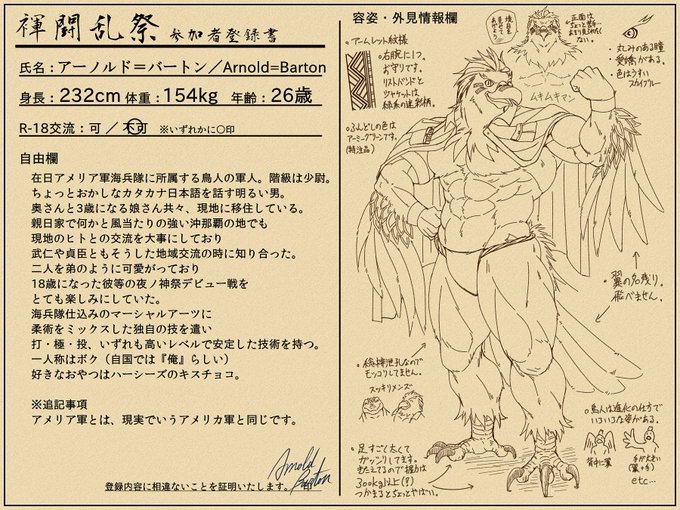 褌闘乱祭 参加者登録書
氏名：アーノルド＝バートン／Arnold=Barton
身長：232cm 体重：154kg 年齢：26歳
R-18交流：可 ／ 不可 ※いずれかに○印
自由欄
在日アメリア軍海兵隊に所属する鳥人の軍人。階級は少尉。
ちょっとおかしなカタカナ日本語を話す明るい男。
奥さんと3歳になる娘さん共々、現地に移住している。
親日家で何かと風当たりの強い沖那覇の地でも
現地のヒトとの交流を大事にしており
武仁や貞臣ともそうした地域交流の時に知り合った。
二人を弟のように可愛がっており
18歳になった彼等の夜ノ神祭デビュー戦を
とても楽しみにしていた。
海兵隊仕込みのマーシャルアーツに
柔術をミックスした独自の技を遣い
打・極・投、いずれも高いレベルで安定した技術を持つ。
一人称はボク（自国では『俺』らしい）
好きなおやつはハーシーズのキスチョコ。
※追記事項
アメリア軍とは、現実でいうアメリカ軍と同じです。
Arnold Barton
登録内容に相違ないことを証明いたします。 印
容姿・外見情報欄
・アームレット紋様
○右腕に1つ。
お守りです。
リストバンドと
ジャケットは
緑系の迷彩柄。
○ふんどしの色は
アーミーグリーンです。
(特注品)
境目を
見せて
あげよう
正面は
ちょっと苦手…
あまり見られたく
ない。
ムキムキマン
丸みのある瞳
愛嬌がある。
色はうすい
スカイブルー
・翼の名残り。
飛べません。
・総排泄孔なので
モッコリしてません。
スッキリメンズ
・足すごく太くて
ガッシリしてます。
きたえてるので握力は
300kg以上(?)
つかまるとちょっとやばい。
・鳥人は進化の仕方で
いろいろな姿がある。
背中に翼
手が大きい
(翼＋手)
etc…